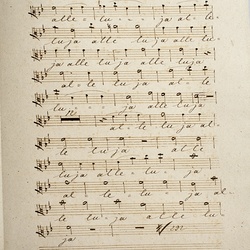 alle - - lu - - ja al - le -
luja alle luja alle luja
ja alle luja alle luja alle
luja alle luja al - - le
luja - - - ja alle luja
al - le - lu - ja
le lu ja al le
luja alle - lu - - ja
al - le - lu - - ja al -
le lu - ja alle lu -
ja